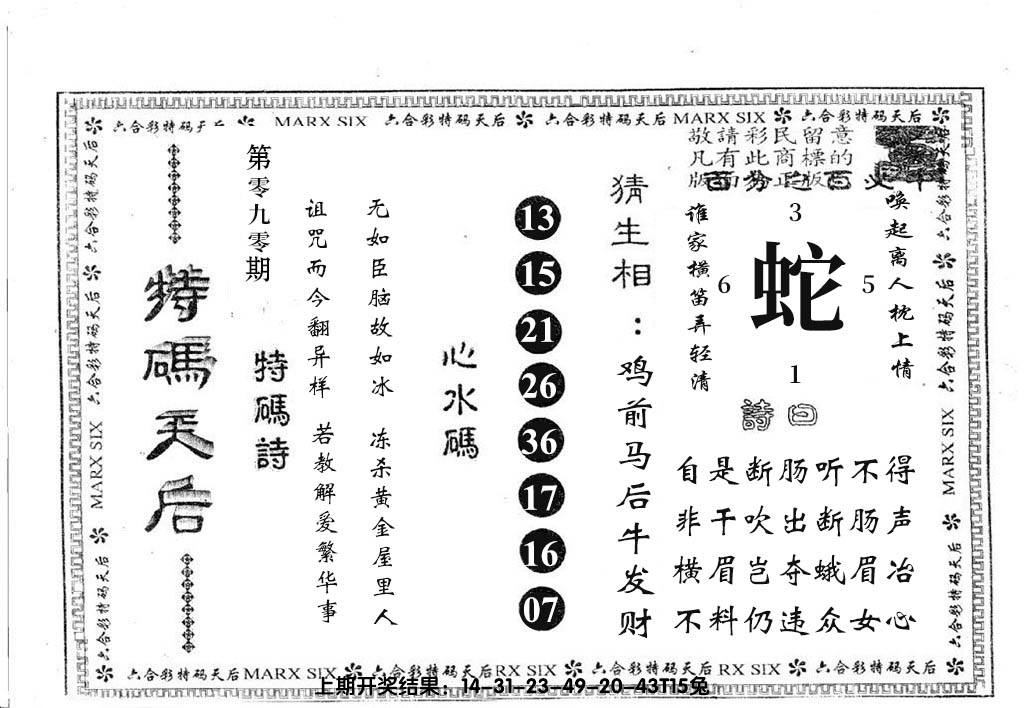 六合彩特码天后 MARX SIX 六合彩特码天后 六合彩特码天后 MARX SIX 六合彩特码天后
六合彩特码天后 六合彩特码天后 MARX SIX 六合彩特码天后
特碼天后
第零九零期
特碼詩
诅咒而今翻异样 若教解爱繁华事
无如臣脑故如冰 冻杀黄金屋里人
心水碼
13
15
21
26
36
17
16
07
猜生相：鸡前马后牛发财
敬請彩民留意
凡有此商標的
版面為正版
谁家横笛弄轻清
唤起离人枕上情
3
6 蛇 5
1
詩曰
自是断肠听不得
非干吹出断肠声
横眉岂夺蛾眉冶
不料仍违众女心
六合彩特码天后 六合彩特码天后 MARX SIX 六合彩特码天后
六合彩特码天后 MARX SIX 六合彩特码天后 RX SIX 六合彩特码天后 RX SIX 六合彩特码天后
上期开奖结果：14-31-23-49-20-43T15兔